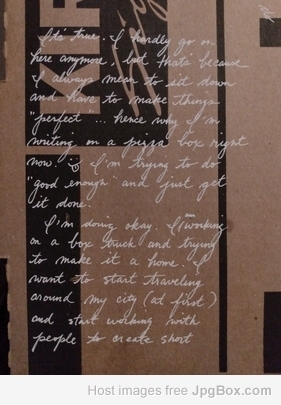 It's true. I hardly go on
here anymore, but that's because
I always mean to sit down
and have to make things
"perfect"... hence why I'm
writing on a pizza box right
now. I'm trying to do
"good enough" and just get
it done.
I'm doing okay. I'm working
on a box truck and trying
to make it a home. I
want to start traveling
around my city (at first)
and start working with
people to create short
Host images free JpgBox.com